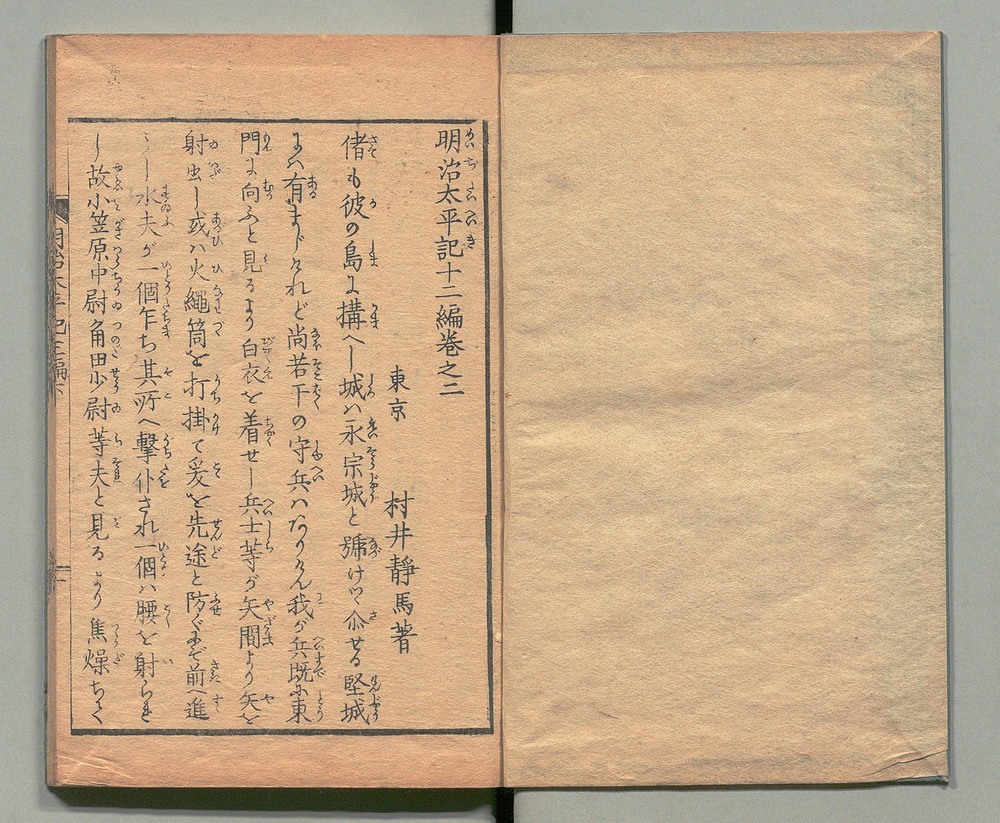 明治太平記十二編巻之二
東京 村井靜馬著
偖も彼の島に搆へし城ハ永宗城と號けつゝ然せる堅城
にハ有まじけれど尚若干の守兵ハなりけん我が兵既に東
門に向ふと見るより白衣を着せし兵士等が矢間より矢を
射出し或ハ火繩筒を打掛て爰を先途と防ぐにぞ前へ進
みし水夫が一個乍ち其所へ擊仆され一個ハ腰を射られ
し故小笠原中尉角田少尉等夫と見るより焦燥ちて